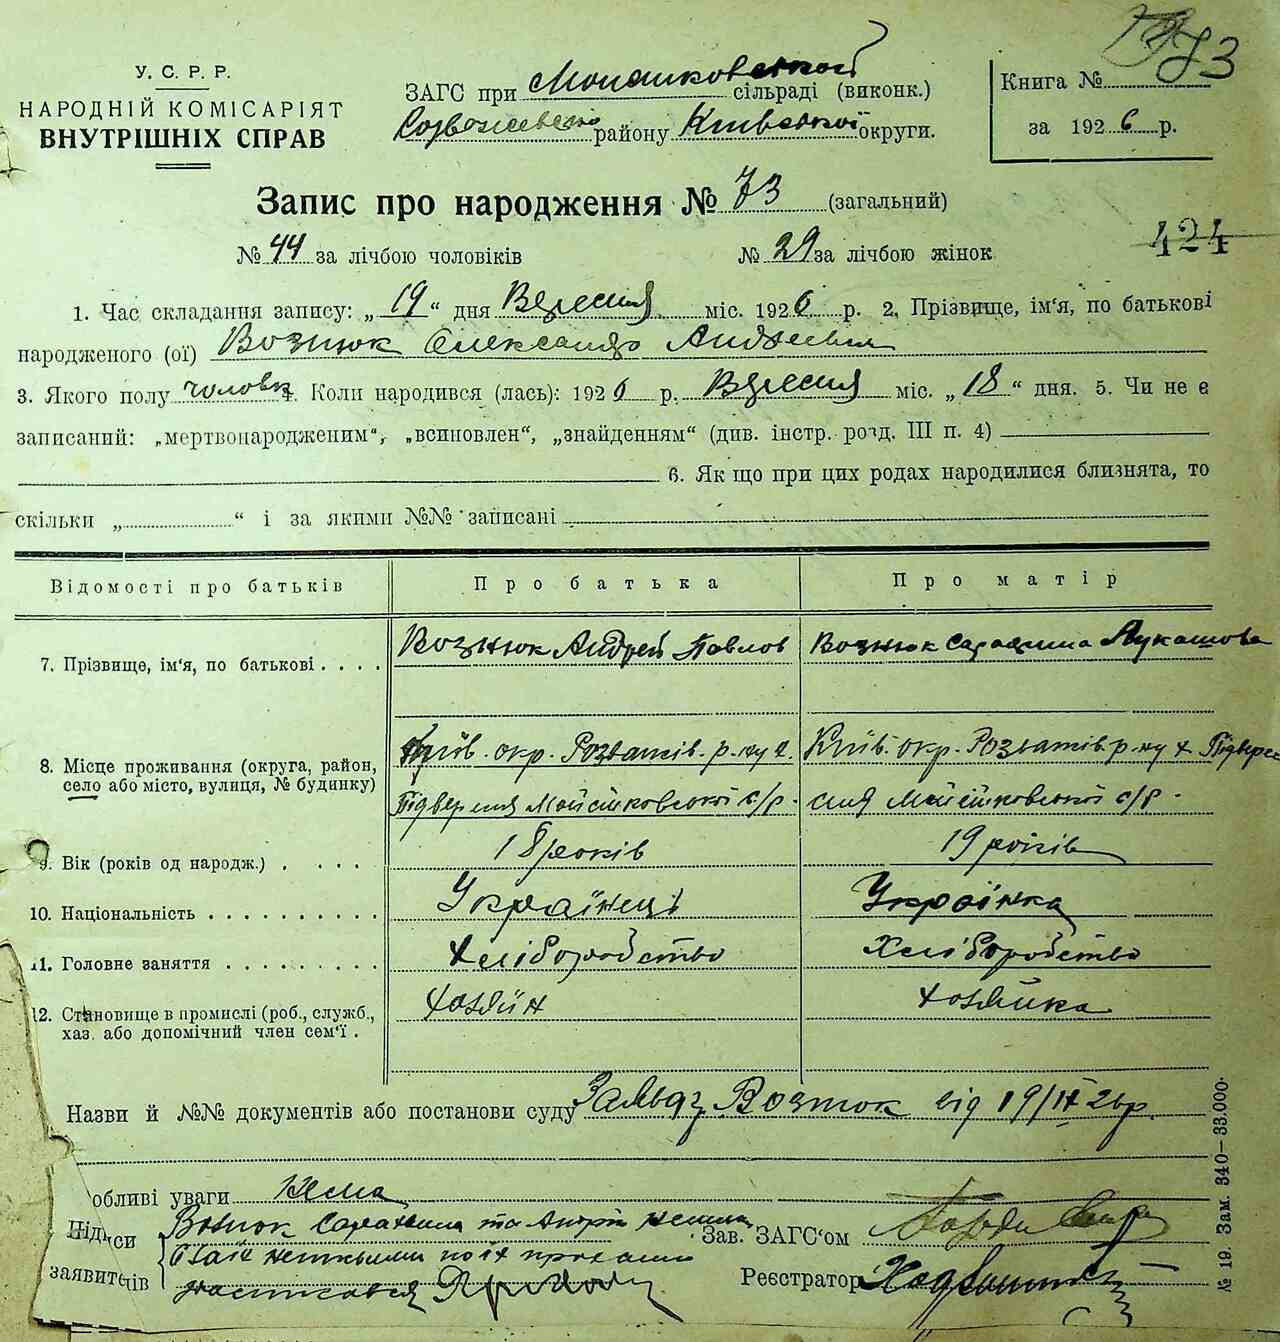 73
У. С. Р. Р.
НАРОДНІЙ КОМІСАРІЯТ
ВНУТРІШНІХ СПРАВ
ЗАГС при сільраді (виконк.)
району Київської округи.
Книга №
за 1926 р.
Запис про народження № 73 (загальний)
№ 44 за лічбою чоловіків № 29 за лічбою жінок
424
1. Час складання запису: „ 19 “ дня Вересня міс. 1926 р. 2. Прізвище, ім'я, по батькові
народженого (ої) Вознюк Олександр Андреевич
3. Якого полу чоловк 4. Коли народився (лась): 1926 р. Вересня міс. „ 18 “ дня. 5. Чи не є
записаний: „мертвонародженим“, „всиновлен“, „знайденням“ (див. інстр. розд. III п. 4)
6. Як що при цих родах народилися близнята, то
скільки „ “ і за якими №№ записані
Відомості про батьків Про батька Про матір
7. Прізвище, ім'я, по батькові . . . . Вознюк Андрей Павлов Вознюк Лукашова
8. Місце проживання (округа, район, село або місто, вулиця, № будинку) Київ. окр. Розважів. р-ну Київ. окр. Розважів. р-ну
с/р. с/р.
9. Вік (років од народж.) . . . . 18 років 19 років
10. Національність . . . . . . . . . . Українець Українка
11. Головне заняття . . . . . . . . . Хліборобство Хліборобство
12. Становище в промислі (роб., служб., хаз. або допомічний член сем'ї . Хозяїн Хозяйка
Назви й №№ документів або постанови суду Вознюк від 19/IX 26р.
обливі уваги Нема
Підписи заявителів Вознюк та
Зав. ЗАГС'ом
Реєстратор
№ 19. Зам. 340—33.000.